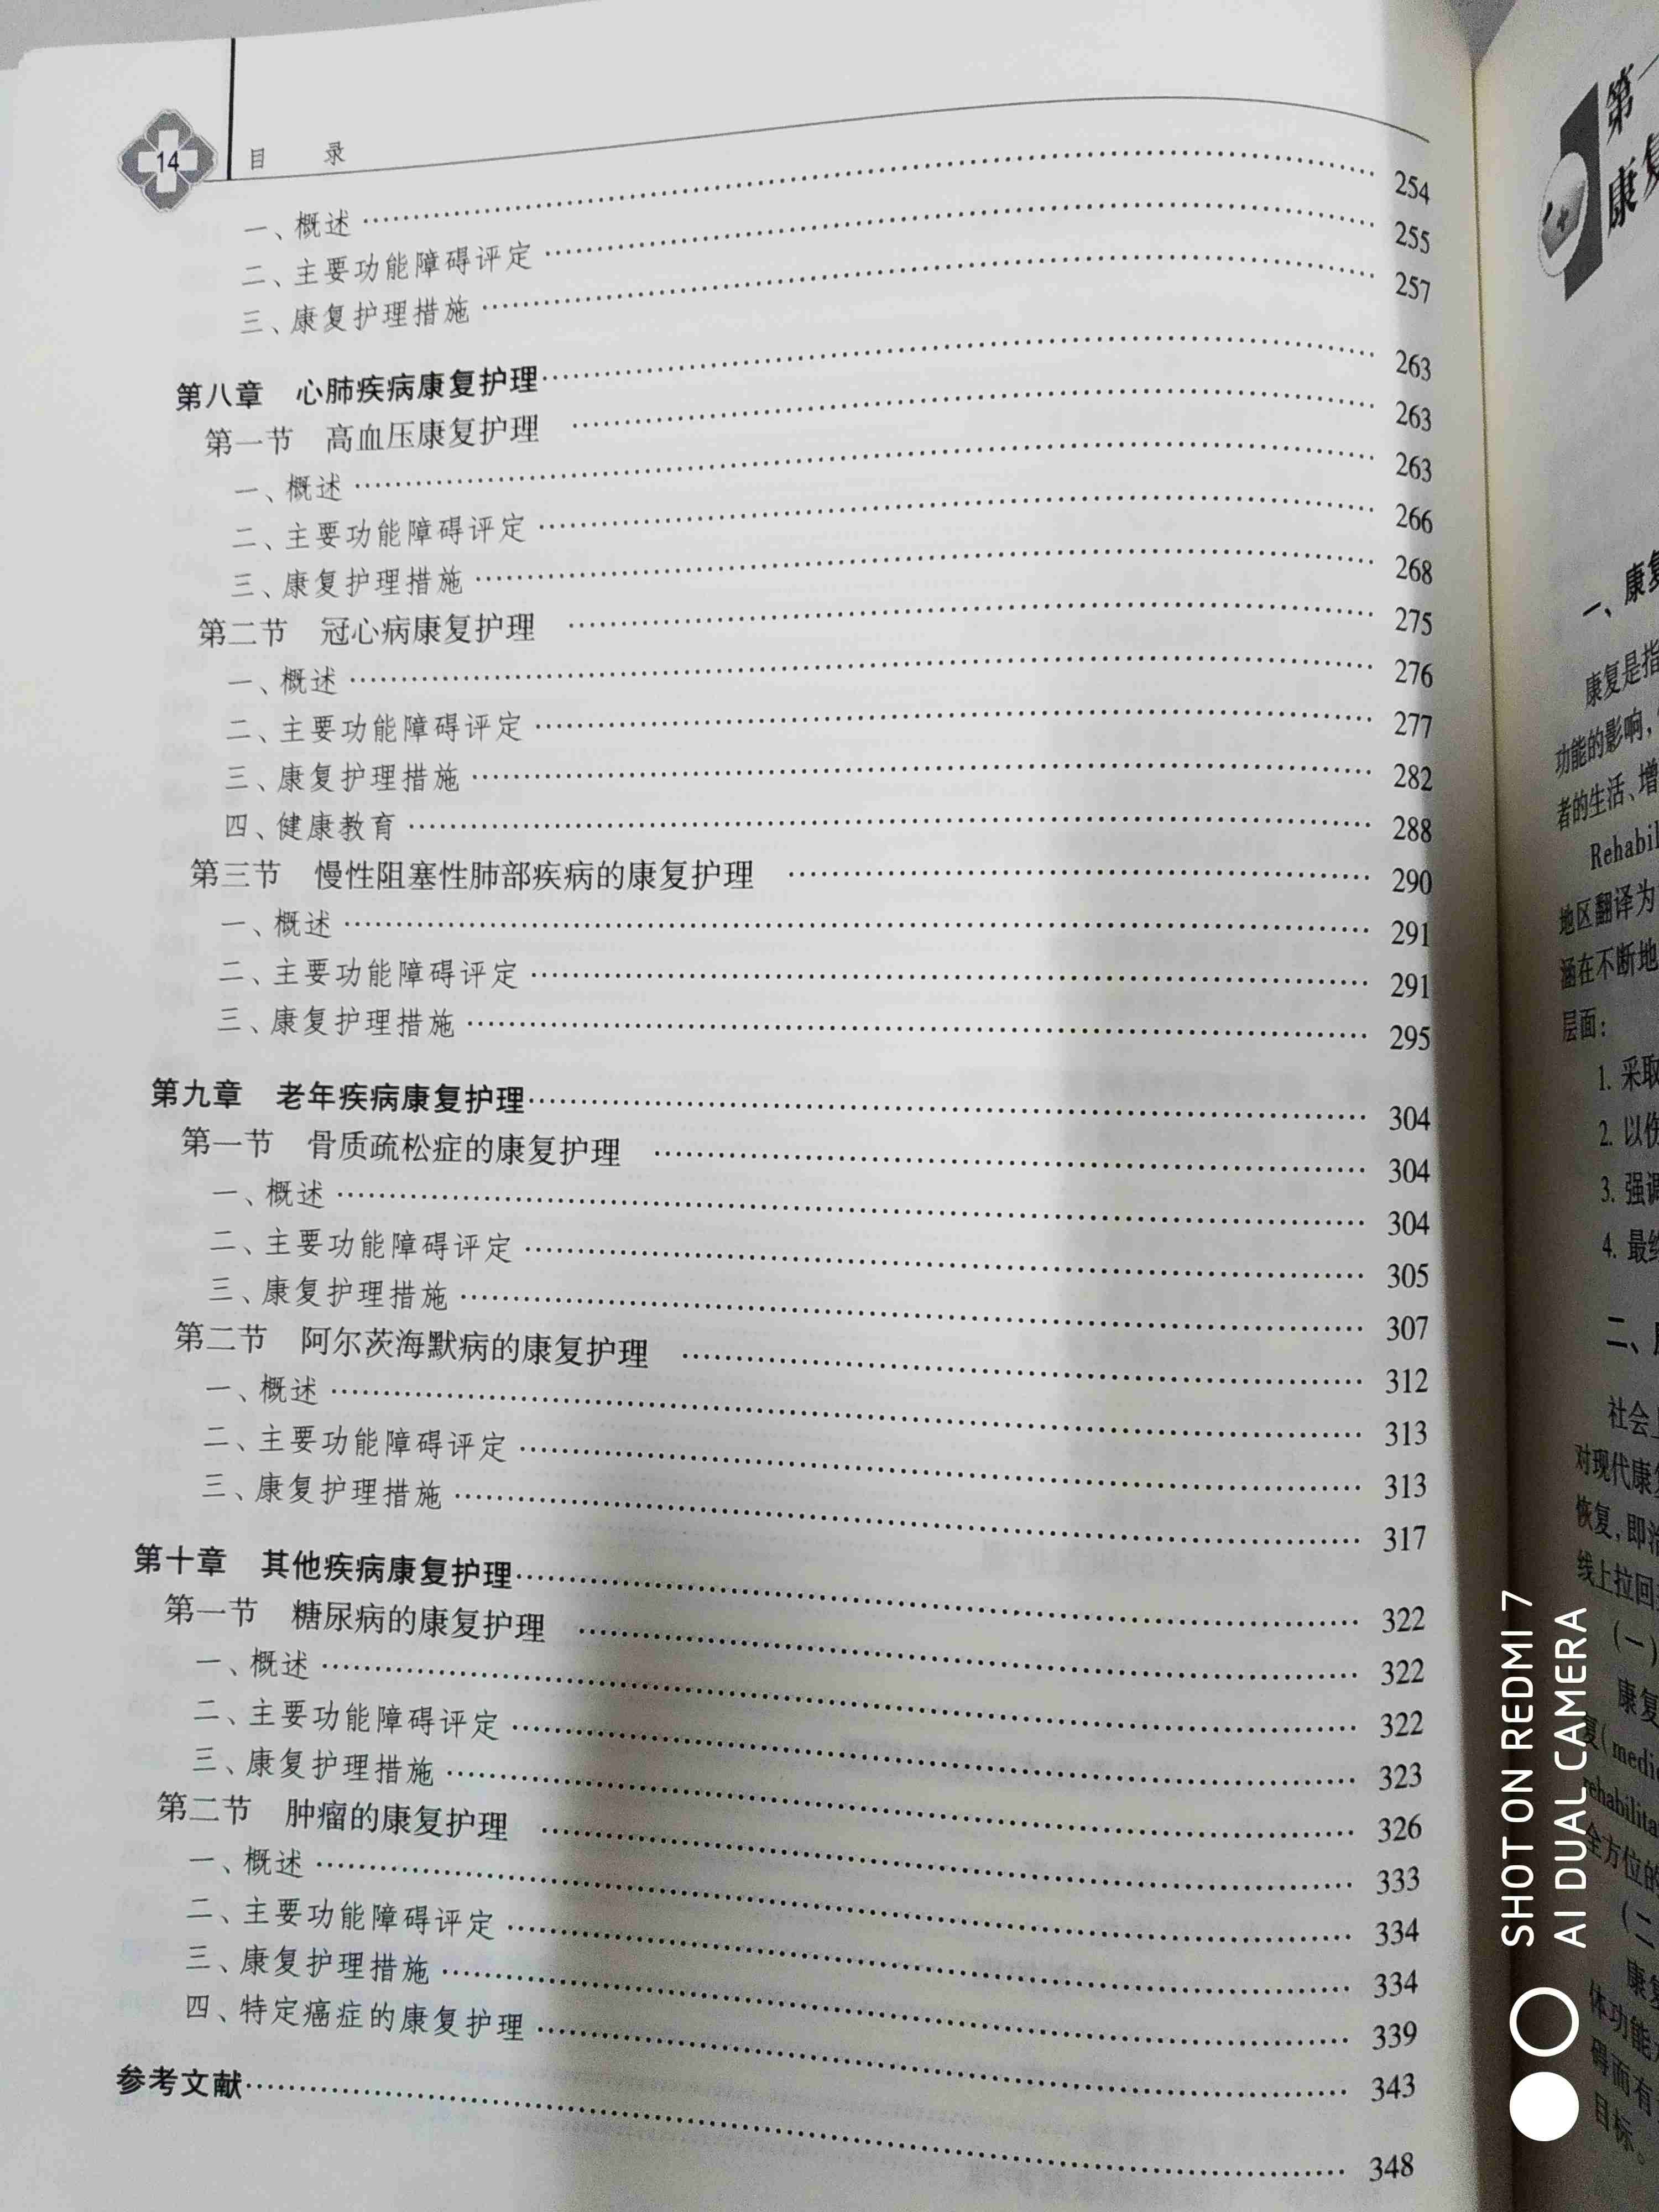 14
目 录
一、概述 254
二、主要功能障碍评定 255
三、康复护理措施 257
第八章 心肺疾病康复护理 263
第一节 高血压康复护理 263
一、概述 263
二、主要功能障碍评定 266
三、康复护理措施 268
第二节 冠心病康复护理 275
一、概述 276
二、主要功能障碍评定 277
三、康复护理措施 282
四、健康教育 288
第三节 慢性阻塞性肺部疾病的康复护理 290
一、概述 291
二、主要功能障碍评定 291
三、康复护理措施 295
第九章 老年疾病康复护理 304
第一节 骨质疏松症的康复护理 304
一、概述 304
二、主要功能障碍评定 305
三、康复护理措施 307
第二节 阿尔茨海默病的康复护理 312
一、概述 313
二、主要功能障碍评定 313
三、康复护理措施 317
第十章 其他疾病康复护理 322
第一节 糖尿病的康复护理 322
一、概述 322
二、主要功能障碍评定 323
三、康复护理措施 326
第二节 肿瘤的康复护理 333
一、概述 334
二、主要功能障碍评定 334
三、康复护理措施 339
四、特定癌症的康复护理 343
参考文献 348
第一
康复
一、康复
康复是指
功能的影响,
者的生活、增
Rehabil
地区翻译为
涵在不断地
层面:
1. 采取
2. 以伤
3. 强调
4. 最终
二、
社会
对现代康复
恢复,即治
线上拉回
(一)
康复
复( medic
rehabilita
全方位的
(二
康复
体功能
碍而有
目标。
SHOT ON REDMI 7
AI DUAL CAMERA